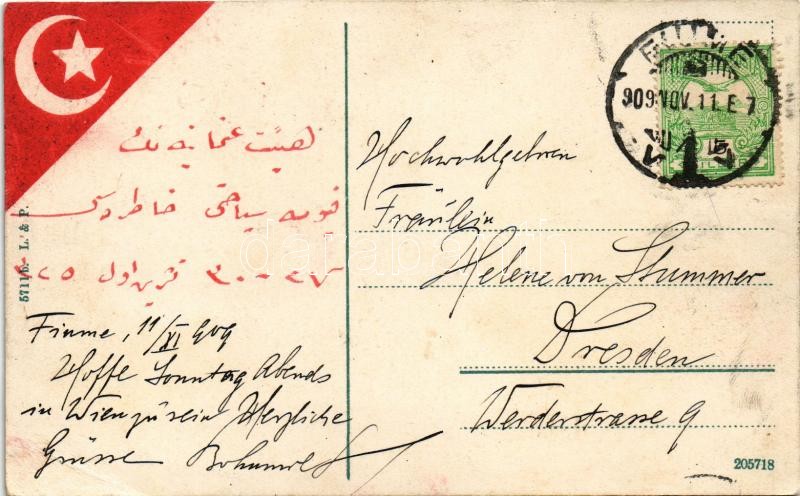 هیئت عثمانیه نك
فیومه سیاحتی خاطره‌سی
تشرین اول ٣٢٥
Fiume, 11/XI 909
Hoffe Sonntag Abends
in Wien zu sein Herzliche
Grüsse
57116. L. & P.
FIUME
909 NOV. 11. E 7
Hochwohlgeboren
Fräulein
Helene von Stummer
Dresden
Werderstrasse 9
205718
darabanth